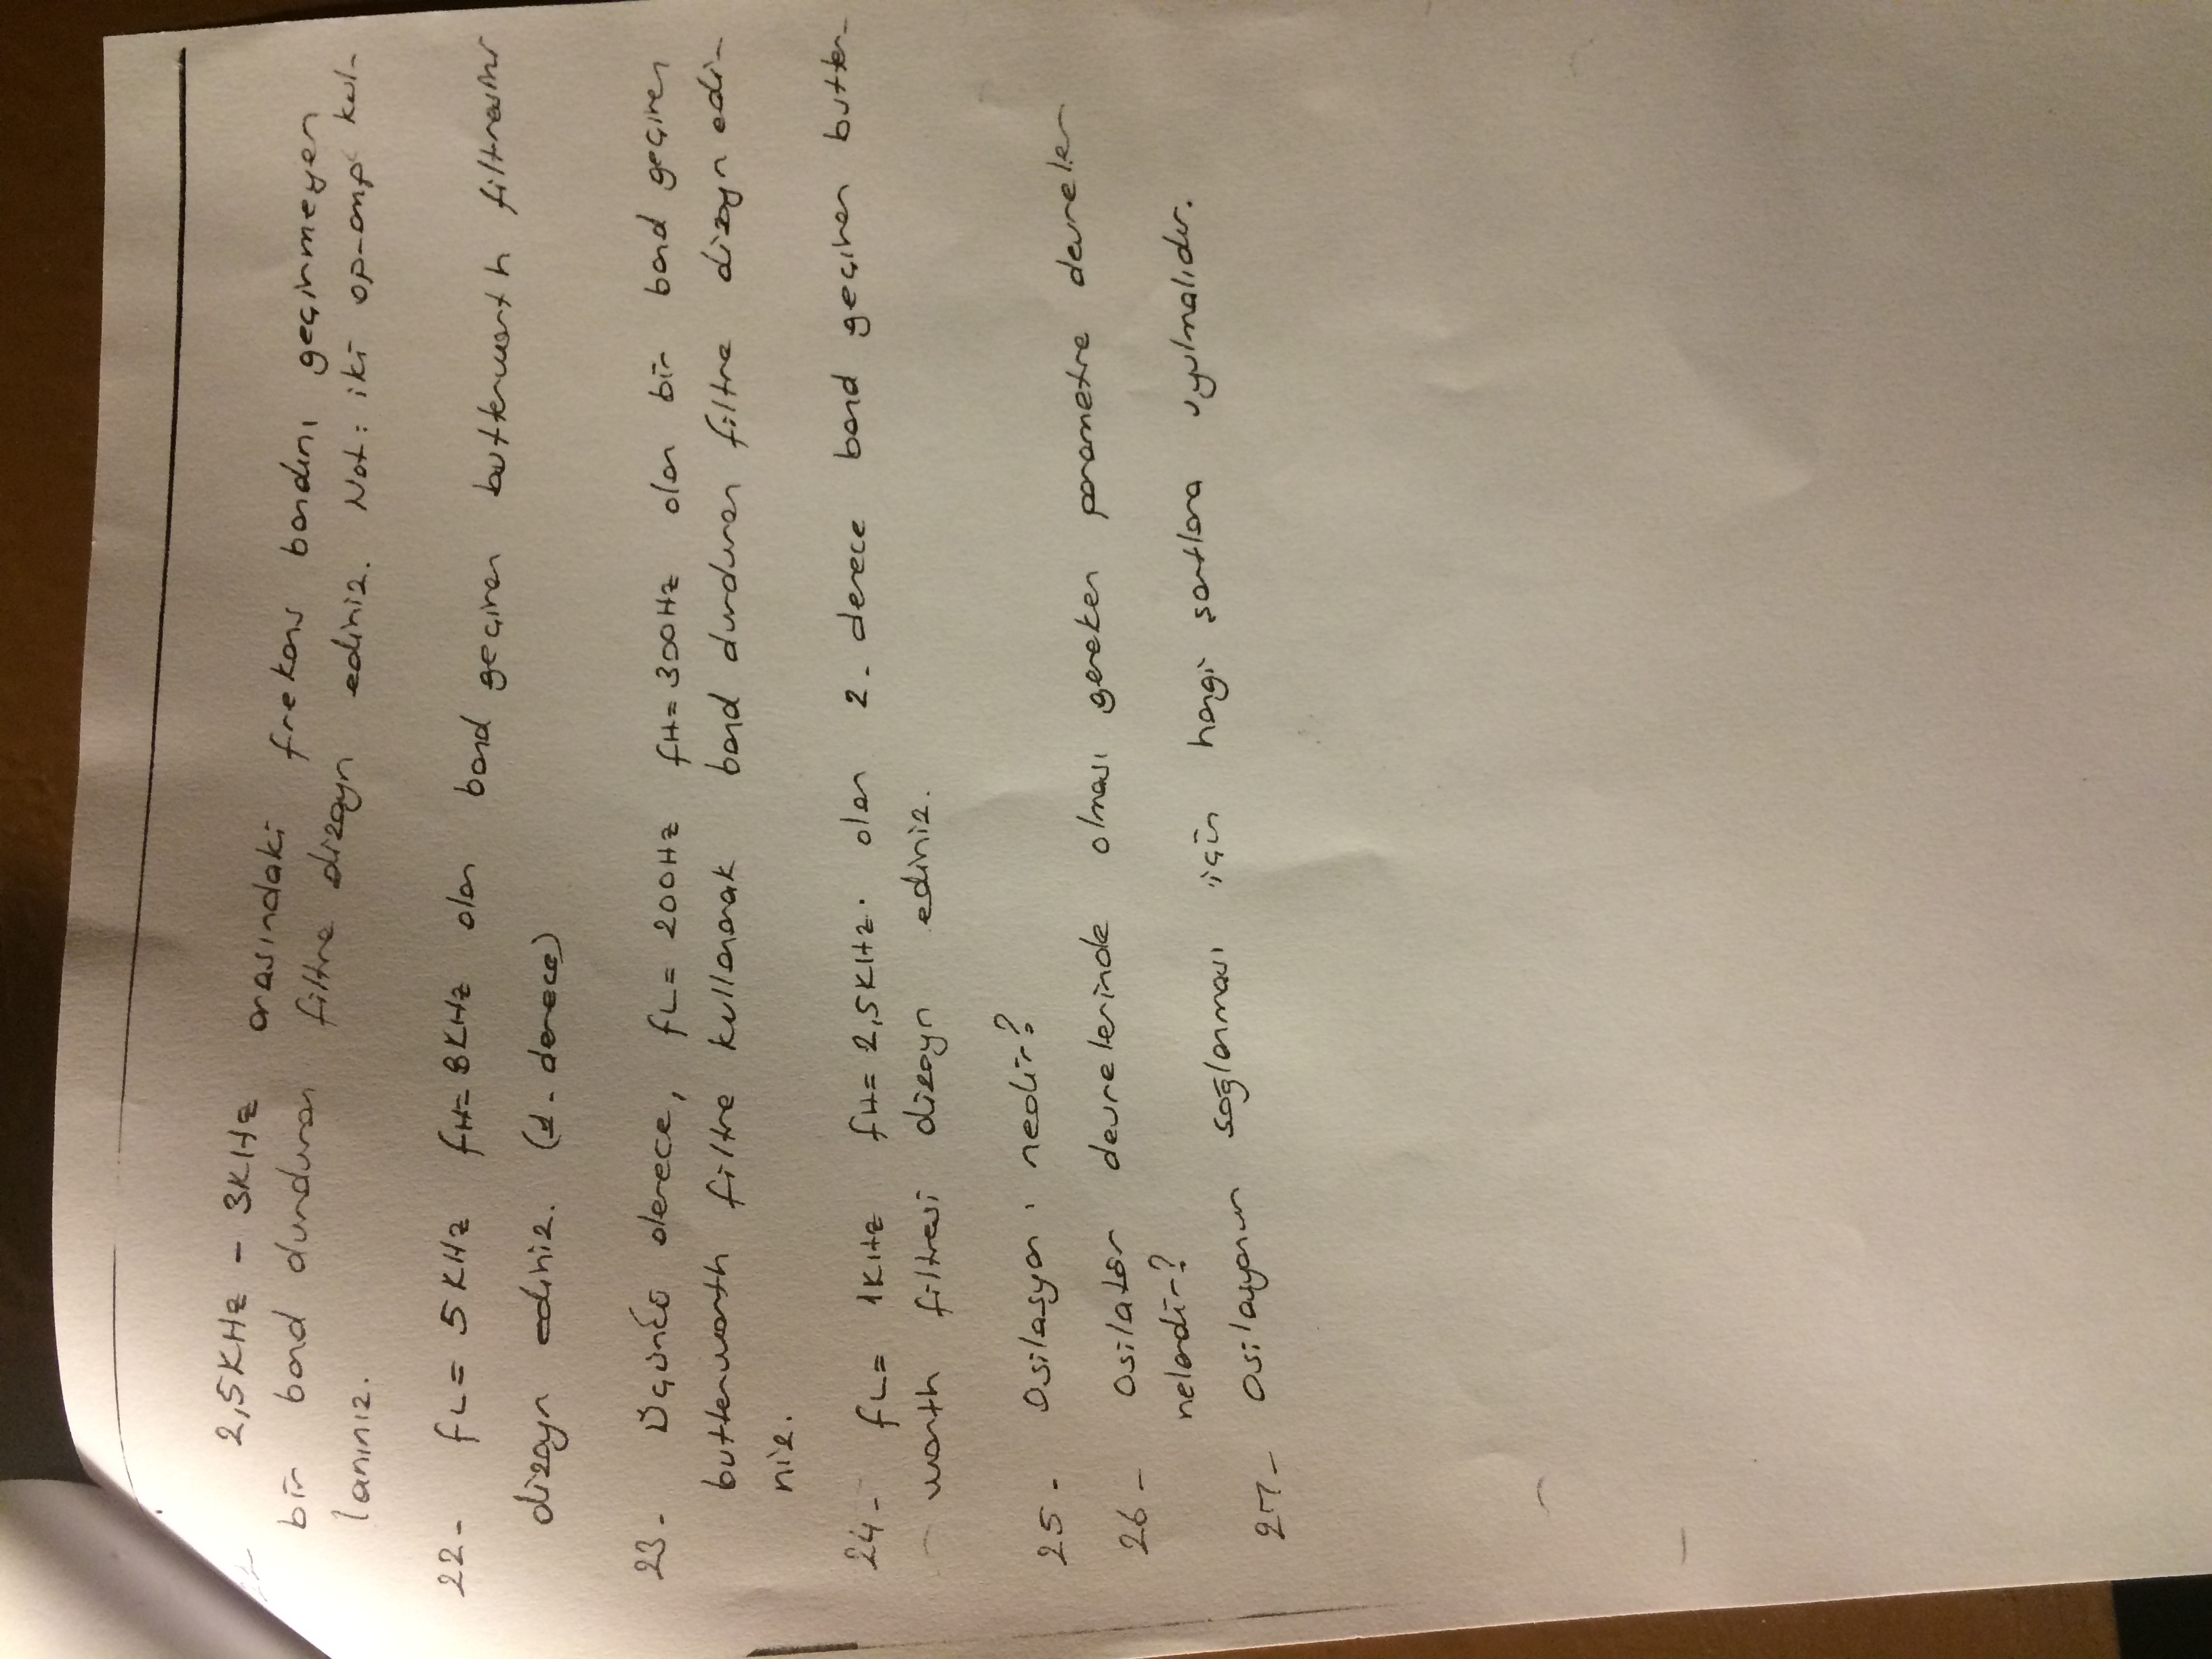 2,5KHz - 3KHz arasındaki frekans bandını geçirmeyen
bir band durduran filtre dizayn ediniz. Not: iki op-amp kul-
lanınız.
22- fL= 5KHz fH= 8KHz olan band geçiren butterworth filtresini
dizayn ediniz. (1. derece)
23- Üçüncü derece, fL= 200Hz fH= 300Hz olan bir band geçiren
butterworth filtre kullanarak band durduran filtre dizayn edi-
niz.
24- fL= 1KHz fH= 2,5KHz. olan 2. derece band geçiren butter-
worth filtresi dizayn ediniz.
25- Osilasyon nedir?
26- Osilatör devrelerinde olması gereken parametre devreler
nelerdir?
27- Osilasyonun sağlanması için hangi şartlara uyulmalıdır.